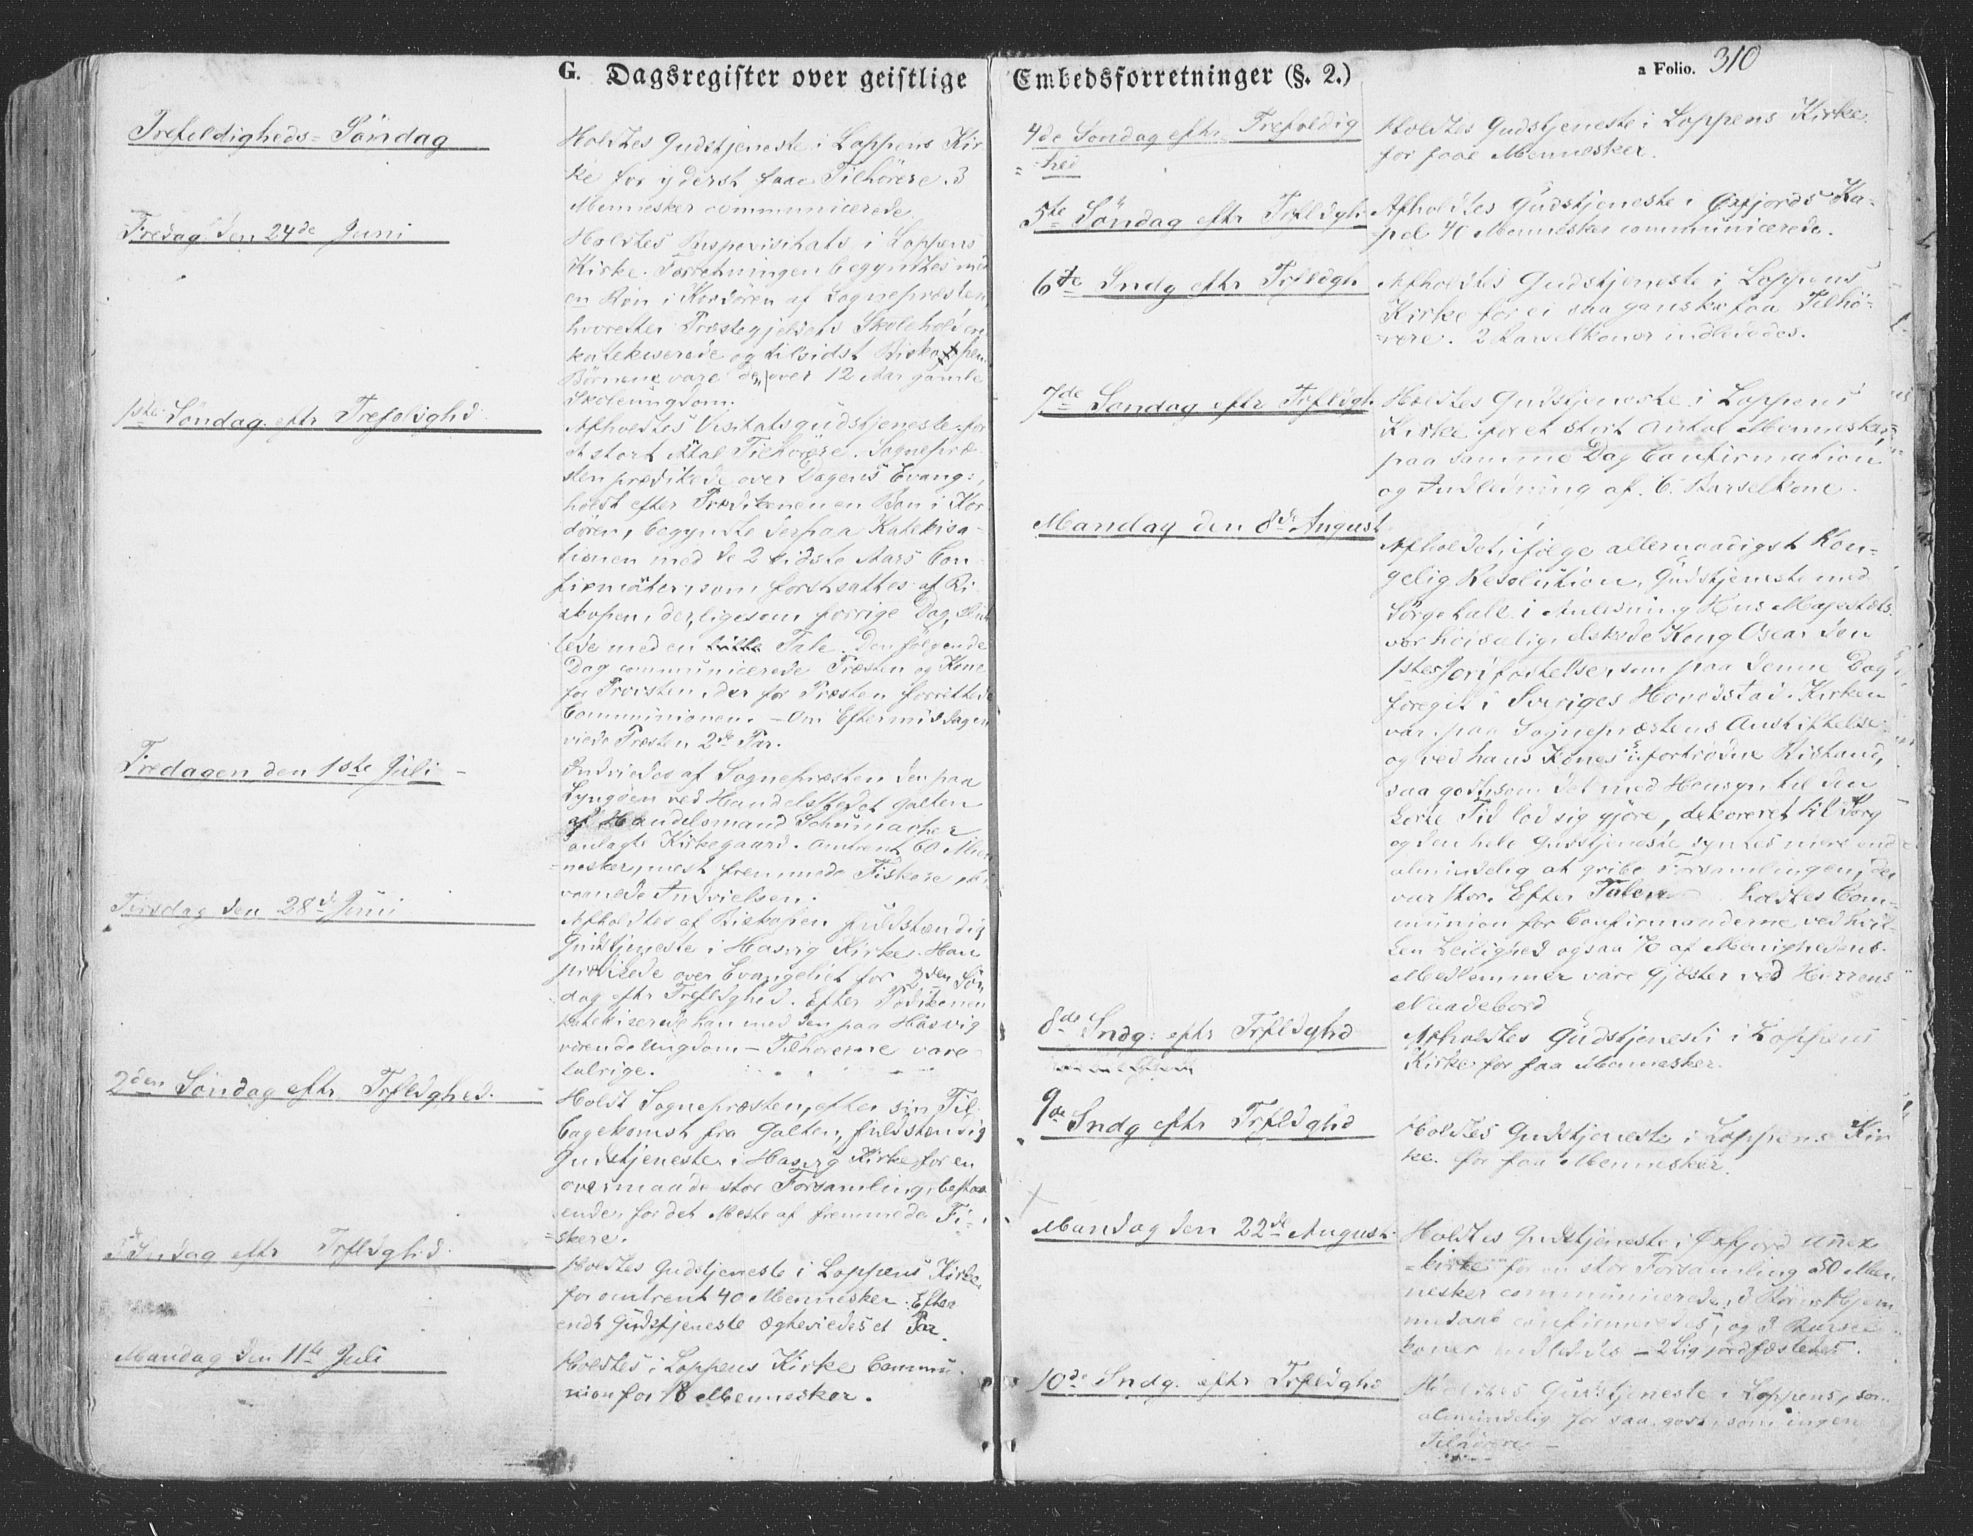 G. Dagsregister over geistlige
Trefoldigheds-Søndag
Holdtes Gudstjeneste i Loppens Kir-
ke for yderst faae Tilhørere. 3
Mennesker communicerede.
Fredag den 24de Juni
Holdtes Bispevisitats i Loppens
Kirke. Forretningen begyndtes med
en Bøn i Kordøren af Sognepræsten,
hvorefter Præstegjeldets Skoleholdere
katekiserede og tilsidst Biskoppen.
Børnene vare den over 12 Aar gamle
Skoleungdom.
1ste Søndag eftr Trefoldghd.
Afholdtes Visitatsgudstjeneste for
et stort Antal Tilhørere. Sognepræ-
sten prædikede over Dagens Evang:,
holdt efter Prædikenen en Bøn i Kor-
døren, begyndte derpaa Katekisa-
tionen med de 2 sidste Aars Con-
firmanter, som fortsattes af Bi-
skopen, der, ligesom forrige Dag, slut-
tede med en Tale. Den følgende
Dag communicerede Præsten og Kone
for Provsten, der for Præsten forrettede
Communionen. - Om Eftermiddagen
viede Præsten 2de Par.
Fredagen den 1ste Juli
Indviedes af Sognepræsten den paa
Lyngøen ved Handelsstedet Galten
af Handelsmand Schumacher
anlagte Kirkegaard. Omtrent 60 Men-
nesker, mest fremmede Fiskere, bi-
vaanede Indvielsen.
Tirsdag den 28de Juni
Afholdtes af Biskopen fuldstændig
Gudstjeneste i Hasvig Kirke. Han
prædikede over Evangeliet for 2den Søn-
dag eftr Trefldghed. Efter Prædikenen
katekiserede han med den paa Hasvig
værende Ungdom - Tilhørerne vare
talrige.
2den Søndag eftr Trfldghed.
Holdt Sognepræsten, efter sin Til-
bagekomst fra Galten, fuldstændig
Gudstjeneste i Hasvig Kirke for en
overmaade stor Forsamling, bestaa-
ende for det Meste af fremmede Fi-
skere.
3die Søndag eftr Trfldghd.
Holdtes Gudstjeneste i Loppens Kirke
for omtrent 40 Mennesker. Efter
endt Gudstjeneste ægteviedes et Par.
Mandag den 11te Juli
Holdtes i Loppens Kirke Commu-
nion for 18 Mennesker.
Embedsforretninger (§. 2.)
a Folio. 310
4de Søndag eftr Trefoldig
-hed
Holdtes Gudstjeneste i Loppens Kirke
for faae Mennesker.
5te Søndag eftr Trfldgh.
Afholdtes Gudstjeneste i Øxfjords Ka-
pel 40 Mennesker communicerede.
6te Sndg eftr Trfldgh
Afholdtes Gudstjeneste i Loppens
Kirke for ei saa ganske faa Tilhø-
rere. 2 Barselkoner indledes.
7de Søndag eftr Trfldgh.
Holdtes Gudstjeneste i Loppens
Kirke for et stort Antal Mennesker,
paa samme Dag Confirmation
og Indledning af 6. Barselkone.
Mandag den 8de August
Afholdet, ifølge allernaadigst Kon-
gelig Resolution, Gudstjeneste med
Sørgetale i Anledning Hans Majestæts
vor høisalig, elskede Kong Oscar den
1stes Jordfæstelse, som paa denne Dag
foregik i Sveriges Hovedstad. Kirken
var paa Sognepræstens Anstiftelse
og ved hans Kones ufortrødne Bistand,
saa godt som det med Hensyn til den
korte Tid lod sig gjøre, dekoreret til Sorg
og den hele Gudstjeneste syntes mere end
almindelig at gribe Forsamlingen, der
var stor. Efter Talen holdtes Com-
munion for Confirmanderne ved hvil-
ken Leilighed ogsaa af Menighedens
Medlemmer vare Gjæster ved Herrens
Naadebord
8de Sndg: eftr Trfldghd
Afholdtes Gudstjeneste i Loppens
Kirke for faa Mennesker.
9de Sndg eftr Trfldghd
Holdtes Gudstjeneste i Loppens Kir
ke. for faa Mennesker.
Mandag den 22de August.
Holdtes Gudstjeneste i Øxfjord Anex
-kirke for en stor Forsamling 50 Men
nesker communicerede,
confirmeredes, og 3 Barsel
koner indledes - 2 Lig jordfæstedes.
10de Sndg. eftr Trfldghd
Holdtes Gudstjeneste i Loppens, som
almindelig for saa godt som ingen
Tilhørere -